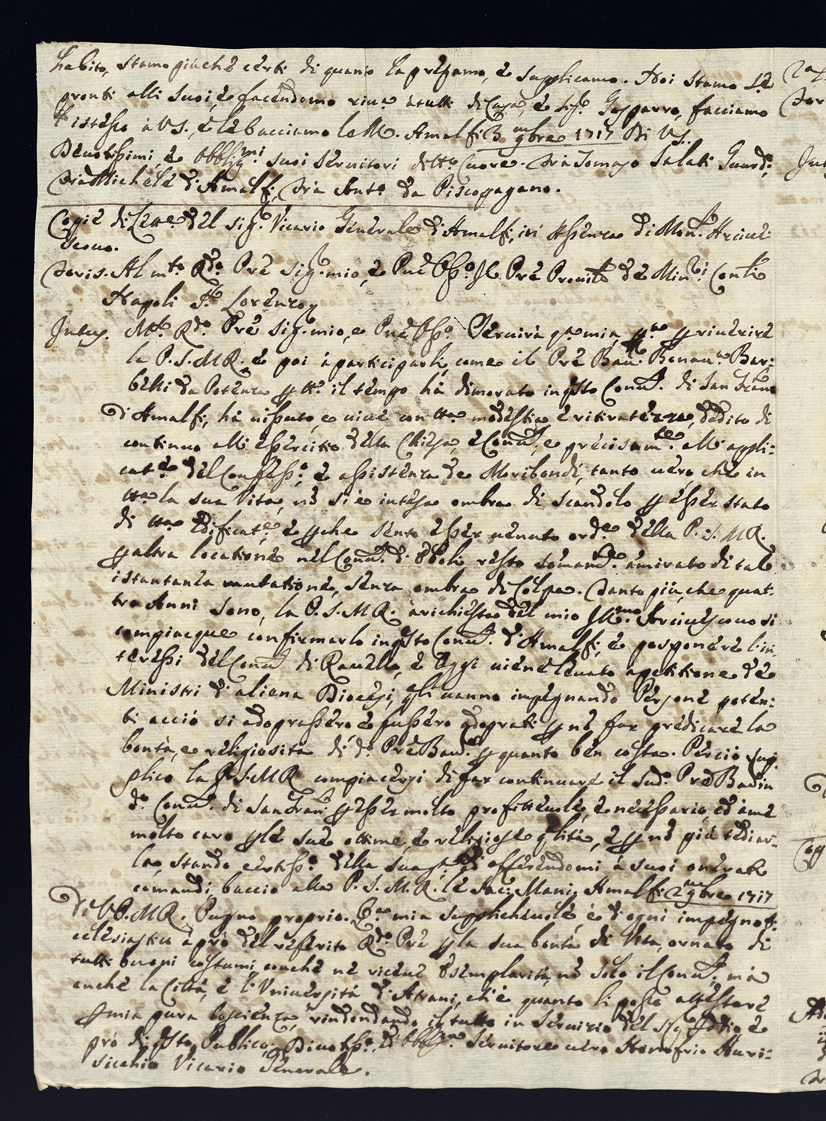 habito, stamo giachè certi di quanto la pregamo, e supplicamo. Noi stamo
pronti alli suoi, e facendomo riva à tutti di Casa, e Sig.r Gasparro, facciamo
l'istesso à V.S., e le bacciamo le M. Amalfi 3 9bre 1717 Di V.S.
Devotissimi, e Obblig.mi suoi servitori di tt.o Cuore. Fra Tomaso Salati Guard.
Fra Michele d'Amalfi, Fra Ant.o da Piscopagano.
Copia di Lettera del Sig.r Vicario Generale d'Amalfi, in assenza di Mon.r Arcives
covo.
Foris. Al m.to R.do Pre Sig.r mio, e Pne Oss.o Il Pre Provin.le de Min.ri Conti
Napoli S. Lorenzo
Intus. M.to R.do Pre Sig.r mio, e Pne Oss.o Servirà q.ta mia p riverire
la P.S.M.R. e poi à participarli, come il Pre Bonav.a Bar:
betti da Potenza p tt.o il tempo hà dimorato in q.sto Conv.to di San Fran.co
d'Amalfi, hà vissuto, e vive con tt.a modestia, e ritiratezza, dedito di
continuo all'esercitio della Chiesa, e Conv.to, e precisam.te all'appli:
cat.e del Confess.o, e assistenza de Moribondi, tanto vero che in
tt.a la sua vita, nò si è intesa ombra di scandolo p esser stato
di tt.a edificat.e, e p che sento esser venuto ord.e della P.S.M.R.
p altra locatione nel Conv.to d'Eboli, resto amirato di tale
istantanea mutatione, senza ombra di Colpa. Tanto più, che quat:
tro Anni sono, la P.S.M.R. à richiesta del mio Ill.mo Arcivescovo si
compiacque confirmarlo in q.sto Conv.to d'Amalfi, e posponere l'in:
teressi del Conv.to di Ravello, e oggi viene levato a petitione de
Ministri d'aliena Diocesi, quali vanno impegnando Persone poten:
ti acciò si adoprassero e fussero adoprati p nò far predicare la
bontà, e religiosità di d.o Pre Bon.a p quanto ben costa. Perciò sup
plico la P.S.M.R. compiacersi di far continuare il sud.o Pre Bon.a in
d.o Conv.to di San Fran.co p esser molto profittevole, e necessario, ed à me
molto caro p le sue ottime, e religiose q.lità, e p nò più tediar:
la, stando certiss.o della sua offerendomi à suoi onorati
comandi, baccio alla P.S.M.R. le Sac: Mani, Amalfi 2 9bre 1717
Di V.P.M.R. Pugno proprio. Q.ta mia supplichevole è d'ogni impegno
ecclesiastico à prò del referito R.do Pre p la sua bontà di Vita, ornato di
tutti buoni costumi, conche ne riceve esemplarità, nò solo il Conv.to, mà
anche la Città, e l'Vniversità d'Atrani, ch'è quanto li posso attestare
p mia pura Coscienza, rindondando il tutto in servizio del Sig.r Iddio, e
prò di q.sto Publico, Devotiss.o, ed Obblig.mo Servitore vero Honofrio Auri:
sicchio Vicario Generale.